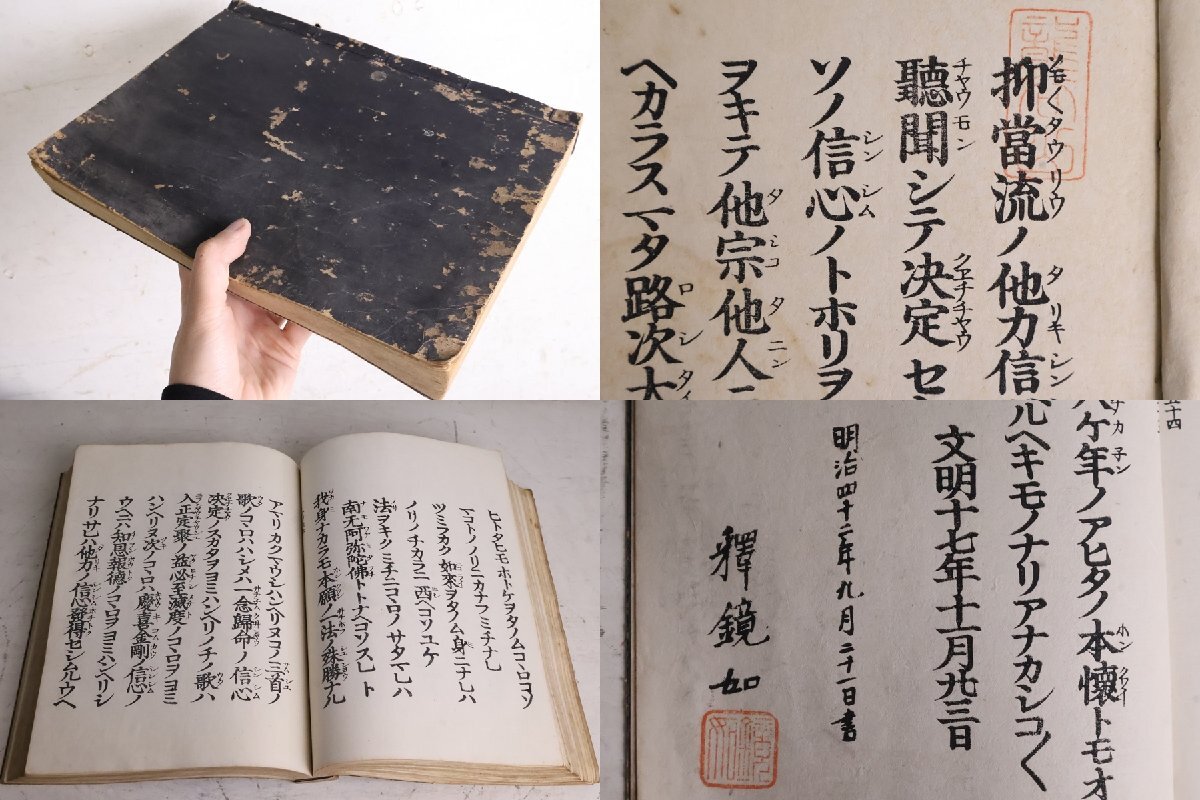 抑當流ノ他力信
聽聞シテ決定セ
ソノ信心ノトホリヲ
ヲキテ他宗他人ニ
ヘカラスマタ路次大
ヒトタヒモホトケヲタノムコヽロコソ
マコトノノリニカナフミチナレ
ツミフカク如來ヲタノム身ニナレハ
ノリノチカラニ西ヘコソユケ
法ヲキクミチニコヽロノサタマレハ
南无阿弥陀佛トトナヘコソスレト
我身ナカラモ本願ノ一法ノ殊勝ナル
アマリカクマウシハンヘリヌコノ三首ノ
歌ノコヽロハハシメハ一念歸命ノ信心
決定ノスカタヲヨミハンヘリノチノ歌ハ
入正定聚ノ益必至滅度ノコヽロヲヨミ
ハンヘリヌ次ノコヽロハ慶喜金剛ノ信心ノ
ウヘニハ知恩報德ノコヽロヲヨミハンヘリシ
ナリサレハ他力ノ信心發得セシムルウヘ
五十四
八ケ年ノアヒタノ本懷トモオ
ヘキモノナリアナカシコ〱
文明十七年十一月廿三日
明治四十二年九月二十一日書
釋鏡如